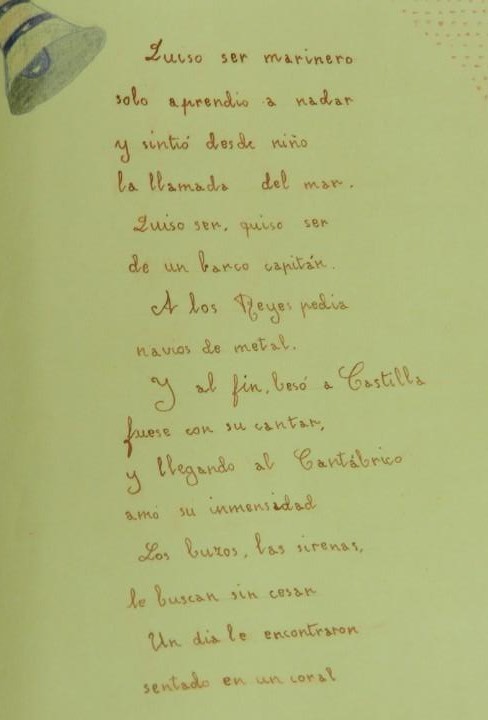 Quiso ser marinero
solo aprendio a nadar
y sintió desde niño
la llamada del mar.
Quiso ser, quiso ser
de un barco capitán.
A los Reyes pedia
navios de metal.
Y al fin, besó a Castilla
fuese con su cantar,
y llegando al Cantábrico
amó su inmensidad
Los buzos, las sirenas,
le buscan sin cesar
Un dia le encontraron
sentado en un coral